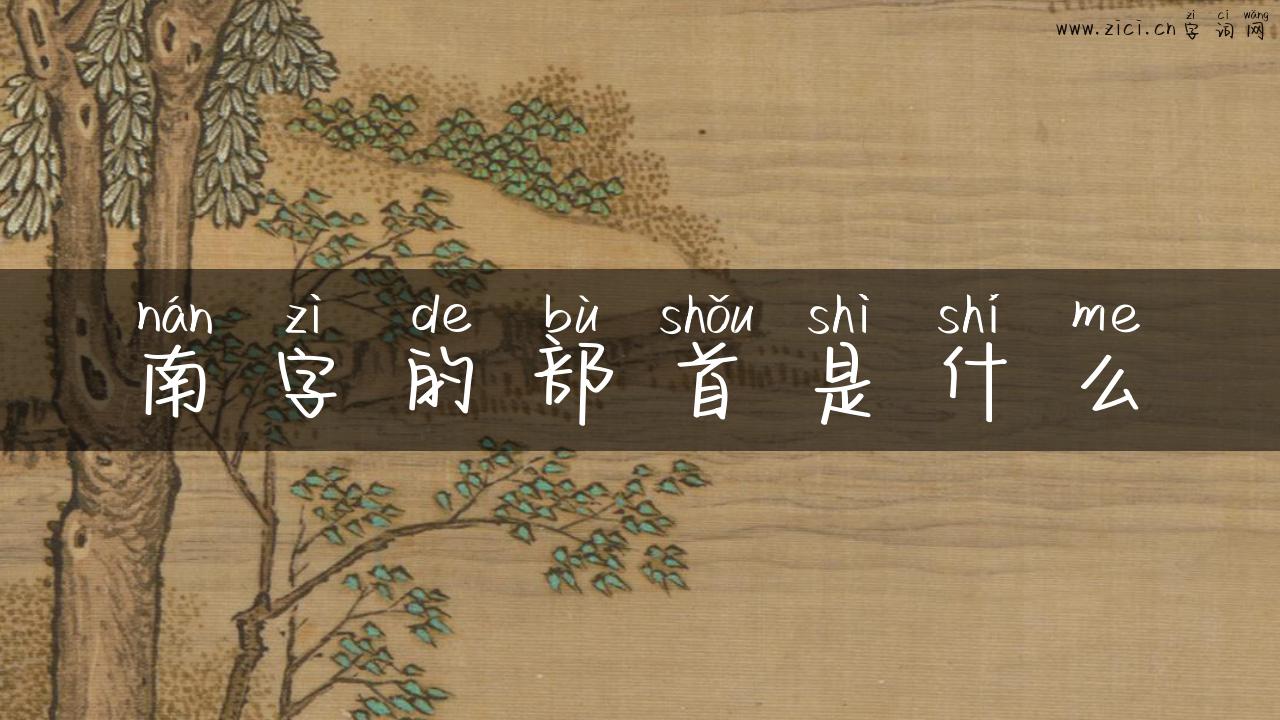 zì cí wǎng
www.zici.cn 字词网
nán zì de bù shǒu shì shí me
南字的部首是什么